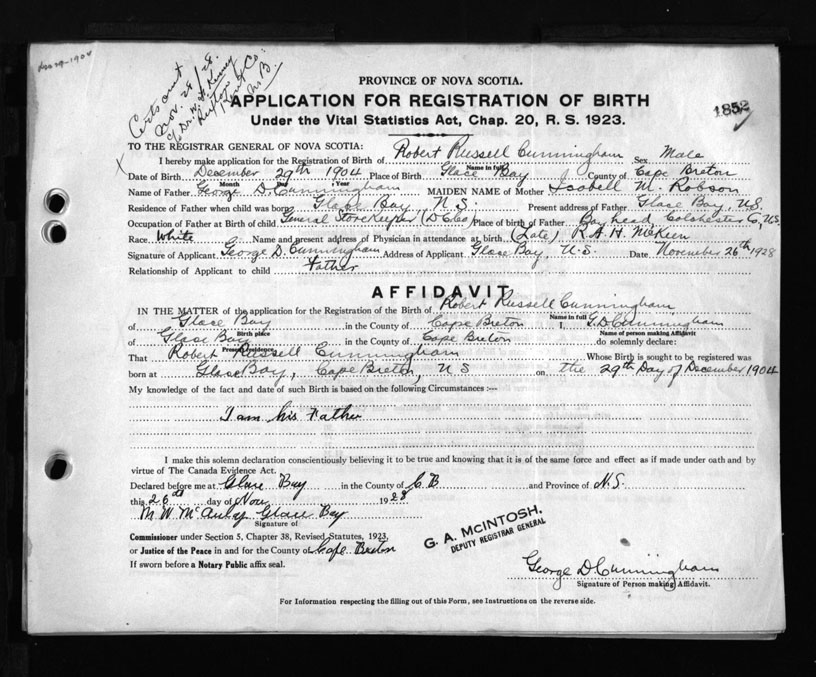 Dec 29-1904
Certs sent
Nov. 28/28
c/o Dr. W. H.
Rexton
Kent Co.
N.B.
PROVINCE OF NOVA SCOTIA.
APPLICATION FOR REGISTRATION OF BIRTH
1852
Under the Vital Statistics Act, Chap. 20, R. S. 1923.
TO THE REGISTRAR GENERAL OF NOVA SCOTIA:
X
I hereby make application for the Registration of Birth of Robert Russell Cunningham Sex Male
Name in full
Date of Birth December 29th 1904 Place of Birth Glace Bay County of Cape Breton
Month Day Year
Name of Father George D. Cunningham MAIDEN NAME of Mother Isobell M. Robson
Residence of Father when child was born Glace Bay N.S. Present address of Father Glace Bay, N.S.
Occupation of Father at Birth of child General Storekeeper (D C Co) Place of birth of Father Bay head Colchester Co, N.S.
Race White Name and present address of Physician in attendance at birth (Late) R. A. H. McKeen
Signature of Applicant George D. Cunningham Address of Applicant Glace Bay, N.S. Date November 26th 1928
Relationship of Applicant to child Father
AFFIDAVIT
IN THE MATTER of the application for the Registration of the Birth of Robert Russell Cunningham
Name in full
of Glace Bay in the County of Cape Breton I, G. D. Cunningham
Birth place Name of person making Affidavit
of Glace Bay in the County of Cape Breton do solemnly declare:
Present Residence
That Robert Russell Cunningham Whose Birth is sought to be registered was
born at Glace Bay, Cape Breton, N S on the 29th Day of December 1904
My knowledge of the fact and date of such Birth is based on the following Circumstances :—
I am his Father
I make this solemn declaration conscientiously believing it to be true and knowing that it is of the same force and effect as if made under oath and by
virtue of The Canada Evidence Act.
Declared before me at Glace Bay in the County of C B and Province of N.S.
this 26th day of Nov 1928
M W McAulay Glace Bay
Signature of
Commissioner under Section 5, Chapter 38, Revised Statutes, 1923,
or Justice of the Peace in and for the County of Cape Breton
If sworn before a Notary Public affix seal.
G. A. McINTOSH,
DEPUTY REGISTRAR GENERAL
George D Cunningham
Signature of Person making Affidavit.
For Information respecting the filling out of this Form, see Instructions on the reverse side.